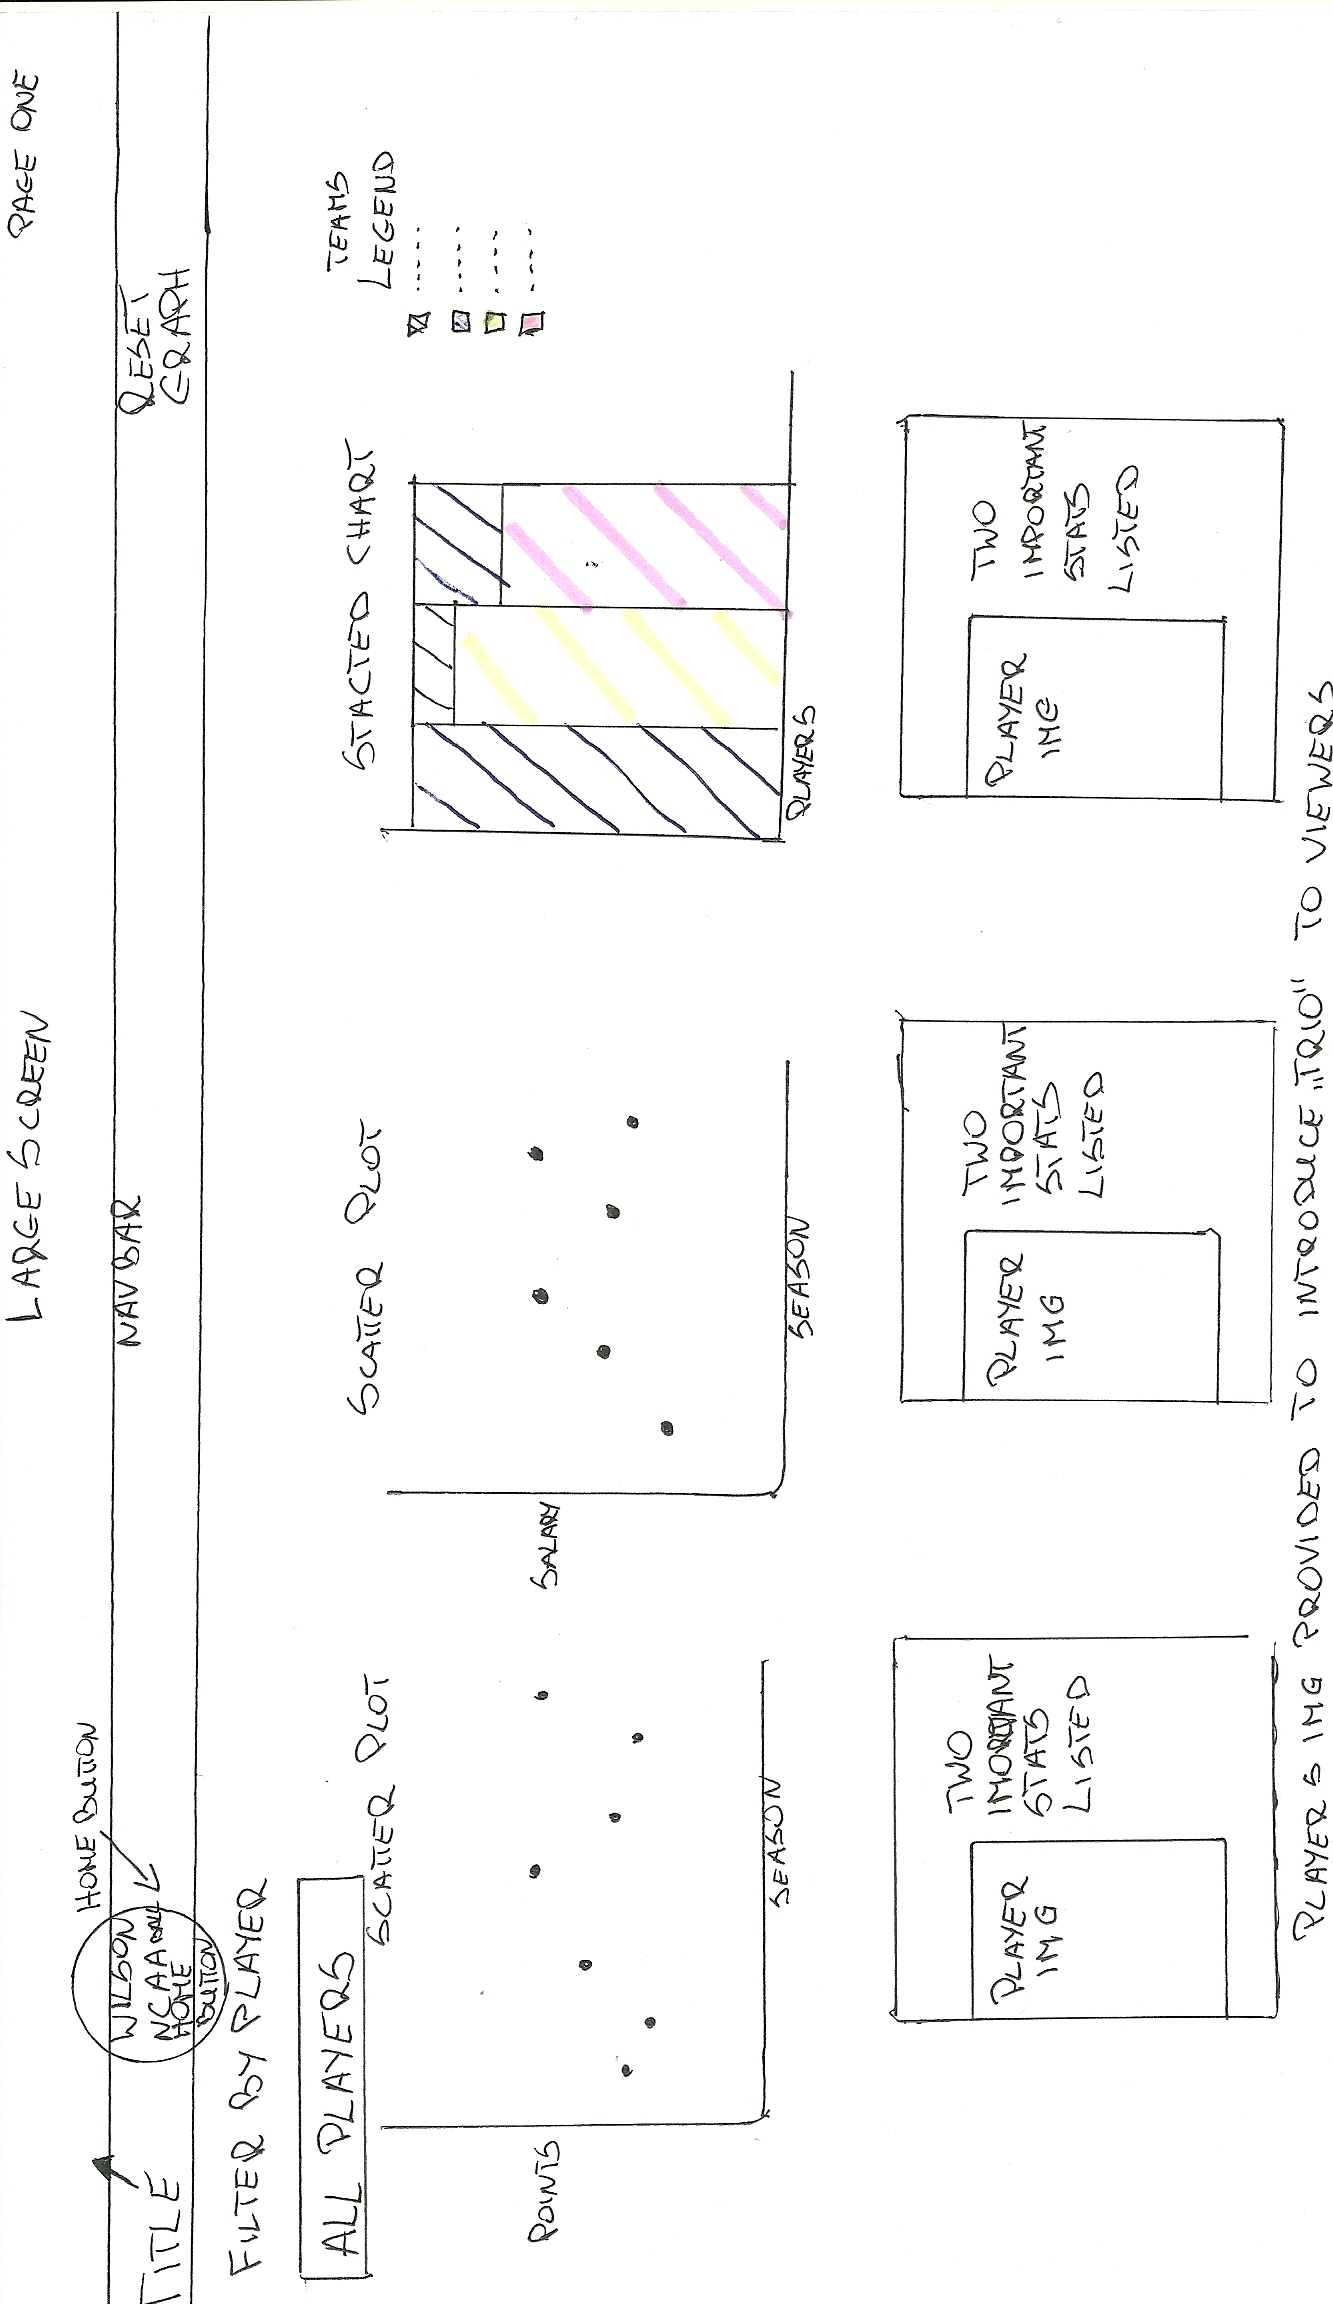 LARGE SCREEN
PAGE ONE
HOME BUTTON
TITLE
WILSON
NCAA BALL
HOME
BUTTON
NAVBAR
RESET
GRAPH
FILTER BY PLAYER
ALL PLAYERS
SCATTER PLOT
POINTS
SEASON
SCATTER PLOT
SALARY
SEASON
STACTED CHART
PLAYERS
TEAMS
LEGEND
PLAYER
IMG
TWO
IMPORTANT
STATS
LISTED
PLAYER
IMG
TWO
IMPORTANT
STATS
LISTED
PLAYER
IMG
TWO
IMPORTANT
STATS
LISTED
PLAYERS IMG PROVIDED TO INTRODUCE „TRIO" TO VIEWERS